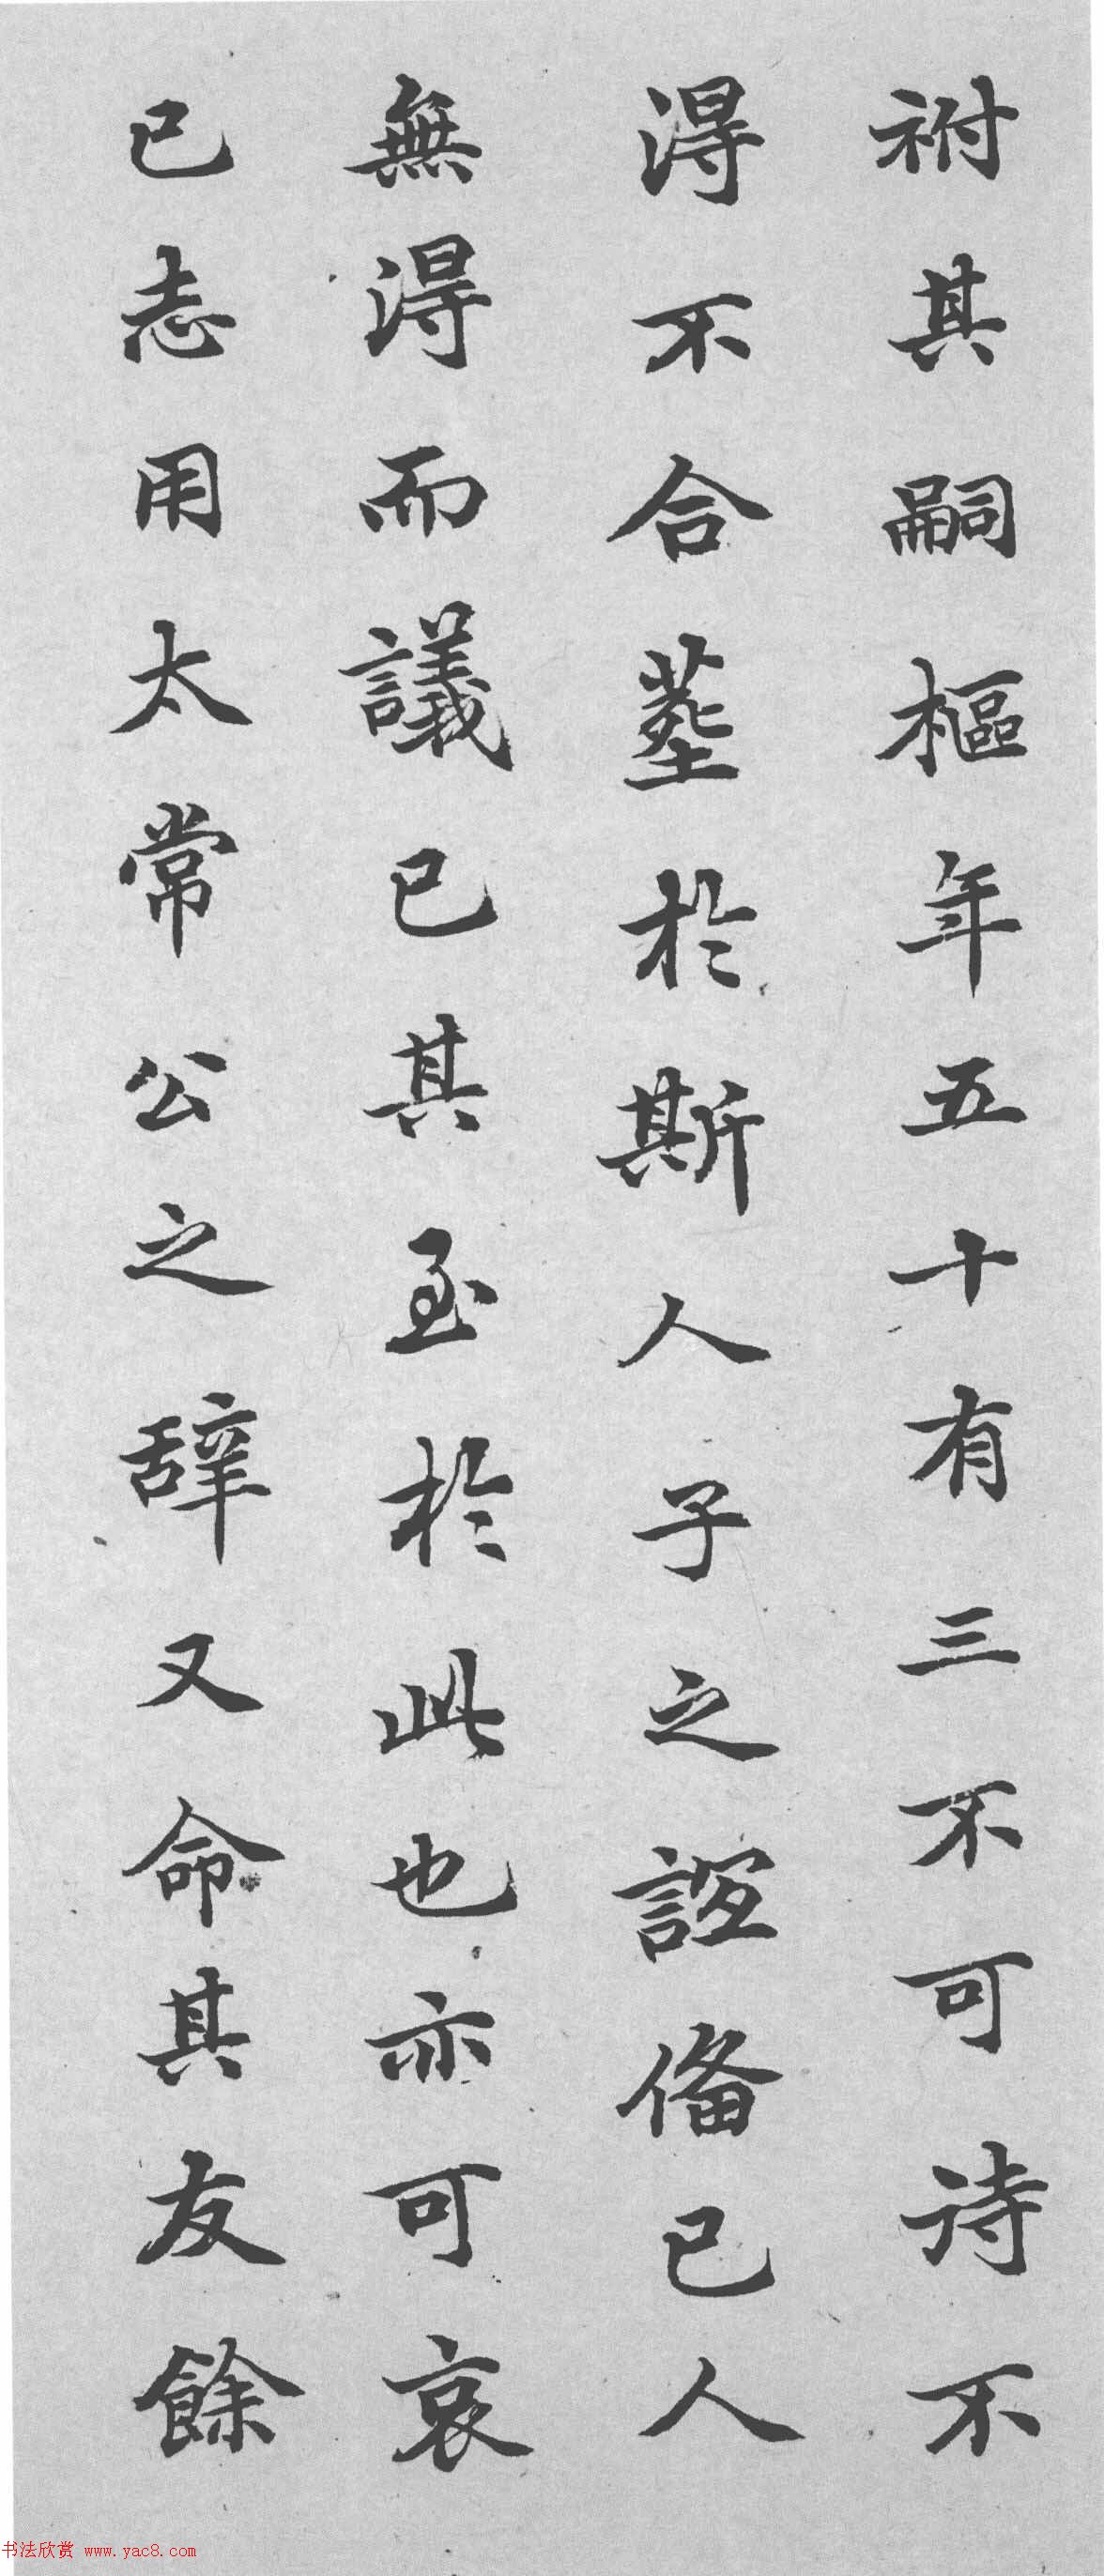 祔其嗣樞年五十有三不可詩不
得不合塟於斯人子之誼俻已人
無得而議已其至於此也亦可哀
已志用太常公之辭又命其友餘
书法欣赏 www.yac8.com